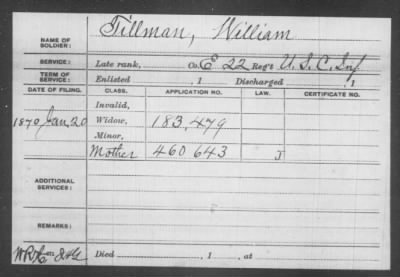 NAME OF SOLDIER: Tillman, William
SERVICE: Late rank, Co. E 22 Reg't U. S. C. Inf
TERM OF SERVICE: Enlisted , 1 Discharged , 1
DATE OF FILING. CLASS. APPLICATION NO. LAW. CERTIFICATE NO.
Invalid,
1870 Jan. 20 Widow, 183,479
Minor,
Mother 460 643 J
ADDITIONAL SERVICES:
REMARKS:
Died , 1 , at